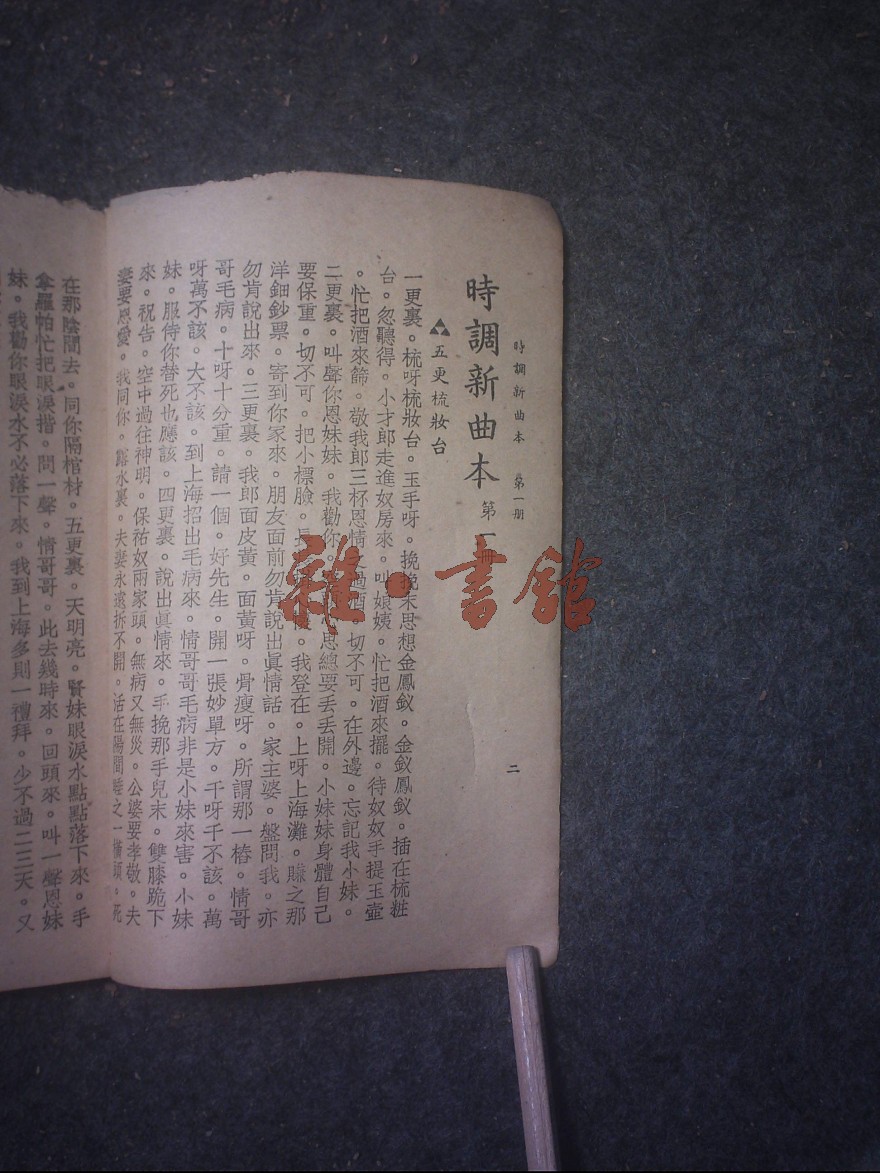 時調新曲本 第一册
二
時調新曲本 第一冊
五更梳妝台
一更裏。梳呀梳妝台。玉手呀。挽挽末思想金鳳釵。金釵鳳釵。插在梳粧
台。忽聽得。小才郎走進奴房來。叫娘姨。忙把酒來擺。待奴奴手提玉壺
。忙把酒來篩。敬我郎三杯恩情 過酒。切不可。在外邊。忘記我小妹。
二更裏。叫聲你恩妹妹。我勸你。 思總要丢丢開。小妹妹身體自己
要保重。切不可。把小標臉。長 我登在。上呀上海灘。賺之那
洋鈿鈔票。寄到你家來。朋友面前勿肯說出眞情話。家主婆。盤問我。亦
勿肯說出來。三更裏。我郎面皮黃。面黃呀。骨瘦呀。所謂那一樁。情哥
哥毛病。十呀十分重。請一個。好先生。開一張妙單方。千呀千不該。萬
呀萬不該。大不該。到上海招出毛病來。情哥哥毛病非是小妹來害。小妹
妹。服侍你替死也應該。四更裏。說出眞情來。手挽那手兒末。雙膝跪下
來。祝告。空中過往神明。保祐奴兩家頭。無病又無災。公婆要孝敬。夫
妻要恩愛。我同你。 水裏。夫妻永遠拆不開。活在陽間睡之一橫頭。死
在那陰間去。同你隔棺材。五更裏。天明亮。賢妹眼淚水點點落下來。手
拿羅帕忙把眼淚揩。問一聲。情哥哥。此去幾時來。回頭來。叫一聲恩妹
妹。我勸你眼淚水不必落下來。我到上海多則一禮拜。少不過二三天。又
雜·書館